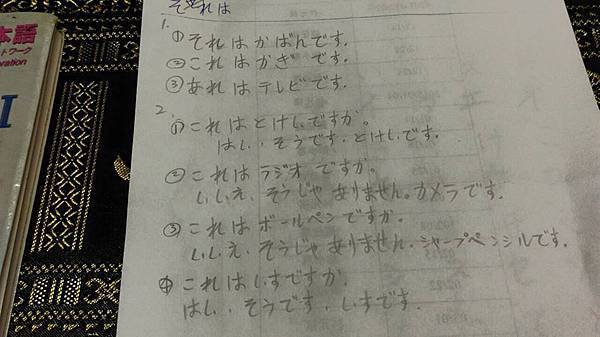 それは
1.
①それはかばんです.
②これはかぎです.
③あれはテレビです.
2.
①これはとけいですか。
はい.そうです.とけいです.
②これはラジオですか。
いいえ.そうじゃありません。カメラです.
③これはボールペンですか.
いいえ.そうじゃありません.シャープペンシルです.
④これはいすですか.
はい.そうです.いすです.
本語
ットワーク
oration
I